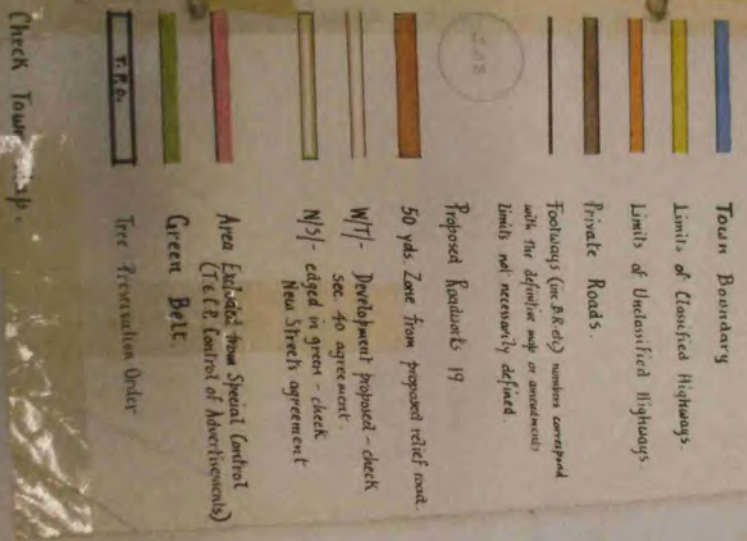 Town Boundary
Limits of Classified Highways.
Limits of Unclassified Highways.
Private Roads.
Footways (inc B.R. etc) numbers correspond
with the definitive map or amendments
Limits not necessarily defined.
Proposed Roadworks 19
50 yds. Zone from proposed relief road.
W/T/- Development proposed - check
sec. 40 agreement.
N/S/- edged in green - check
New Streets agreement
Area Excluded from Special Control
(T & C.P. Control of Advertisements)
Green Belt.
T.P.O.
Tree Preservation Order
Check Town Map.